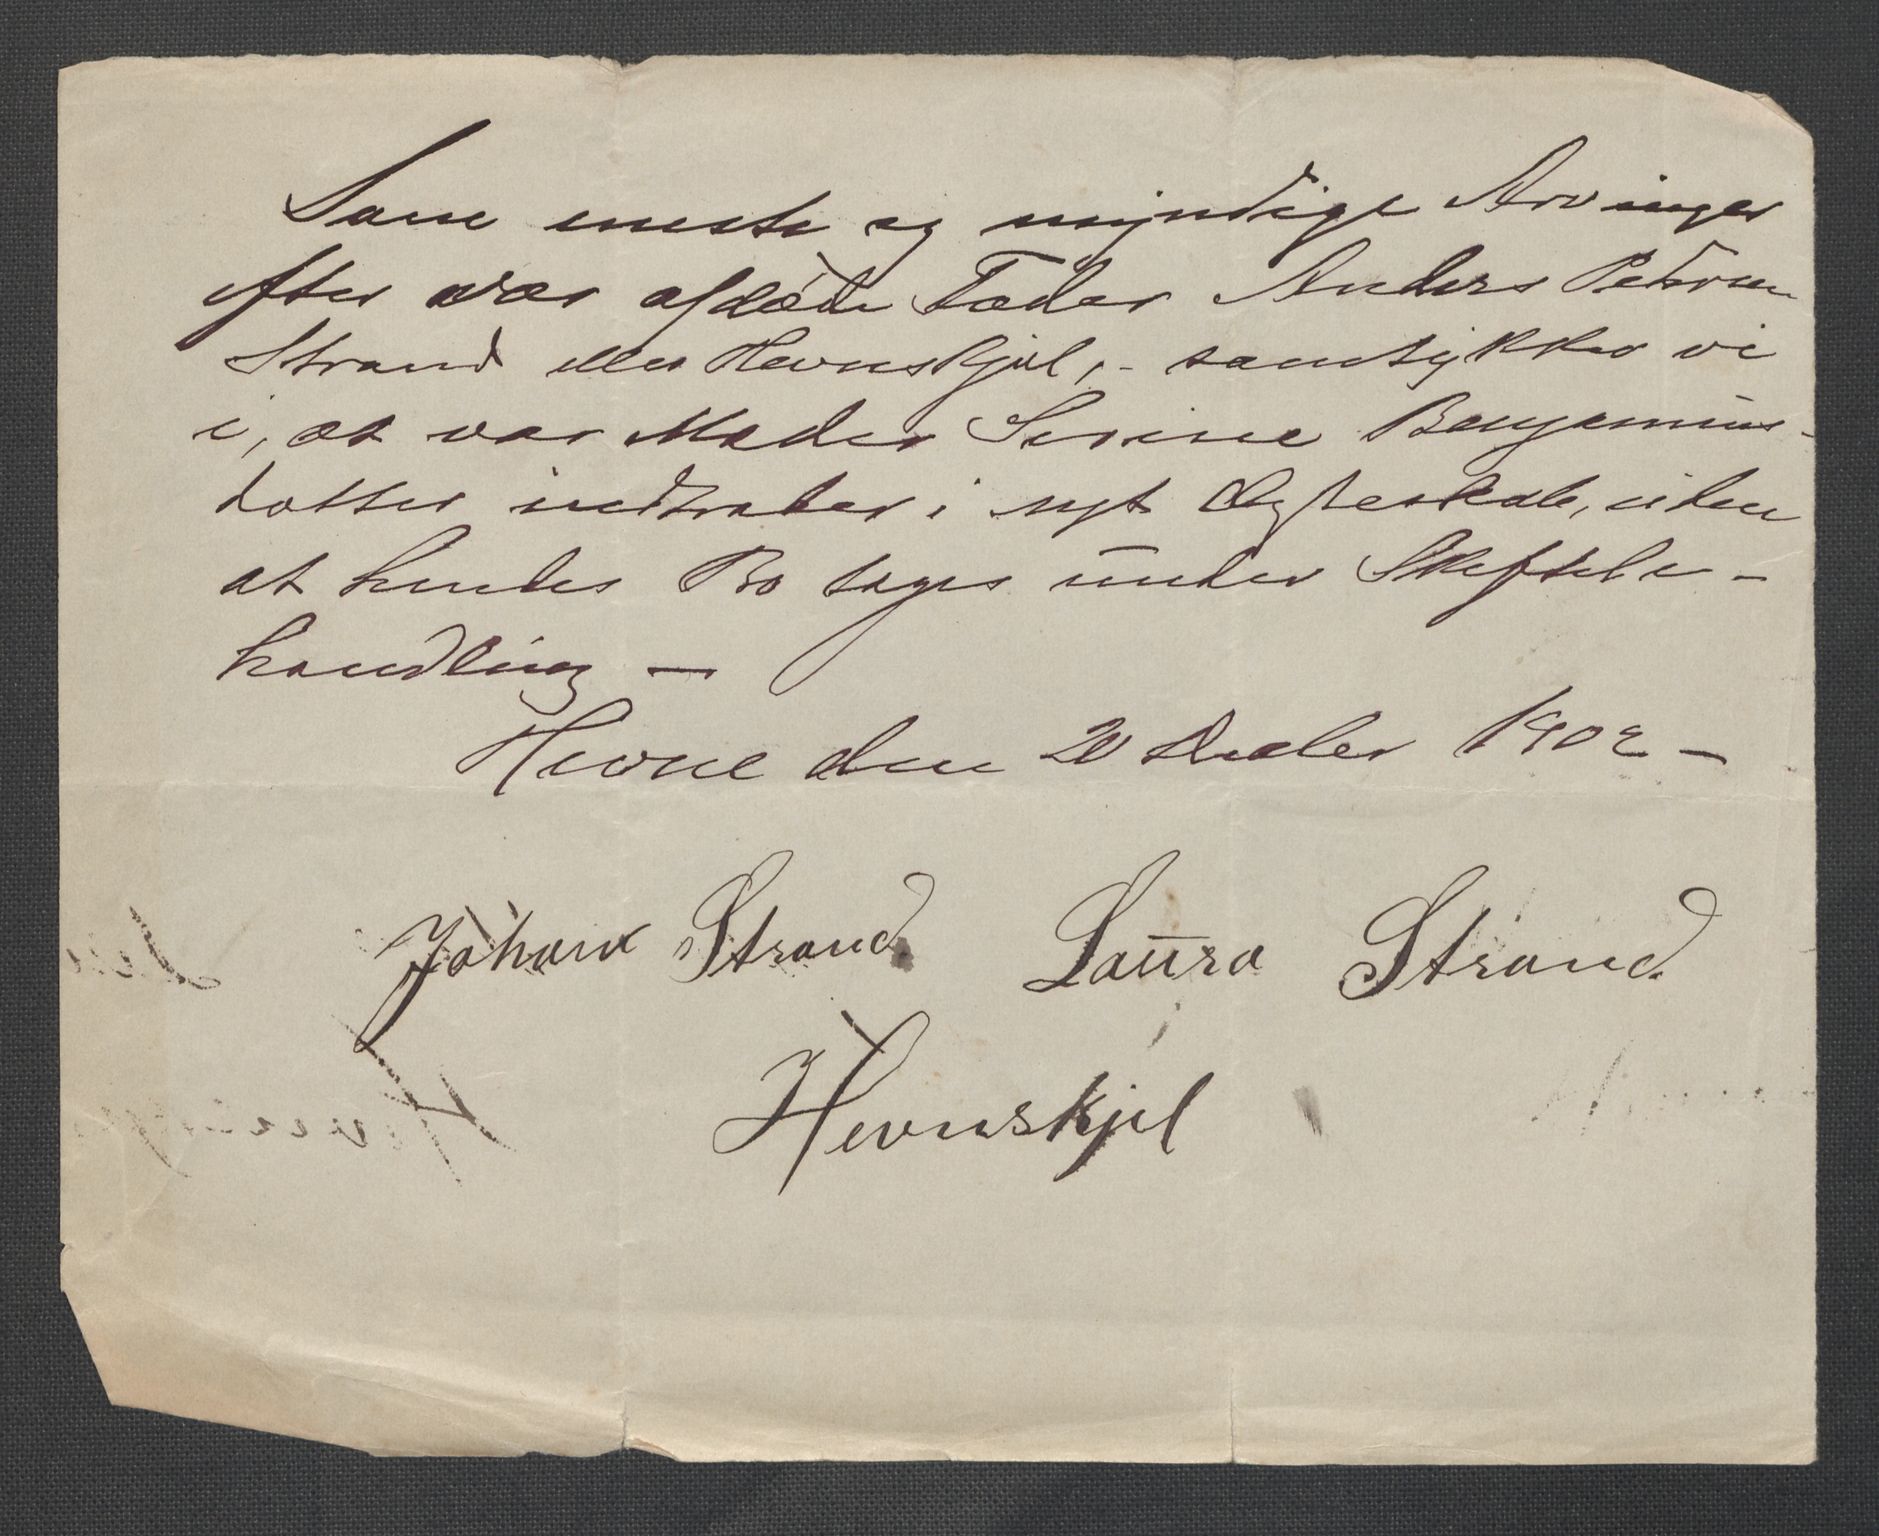 Som eneste og myndige Arvinger
efter vor afdøde Fader Anders Peterson
Strand eller Hevnskjel, - samtykker vi
i, at vor Moder Serine Benjamins-
dotter indtræder i nyt Ægteskab, uden
at hendes Bo tages under Skiftebe-
handling —
Hevne den 20 Decbr 1902 —
Johan Strand Laura Strand
Hevnskjel